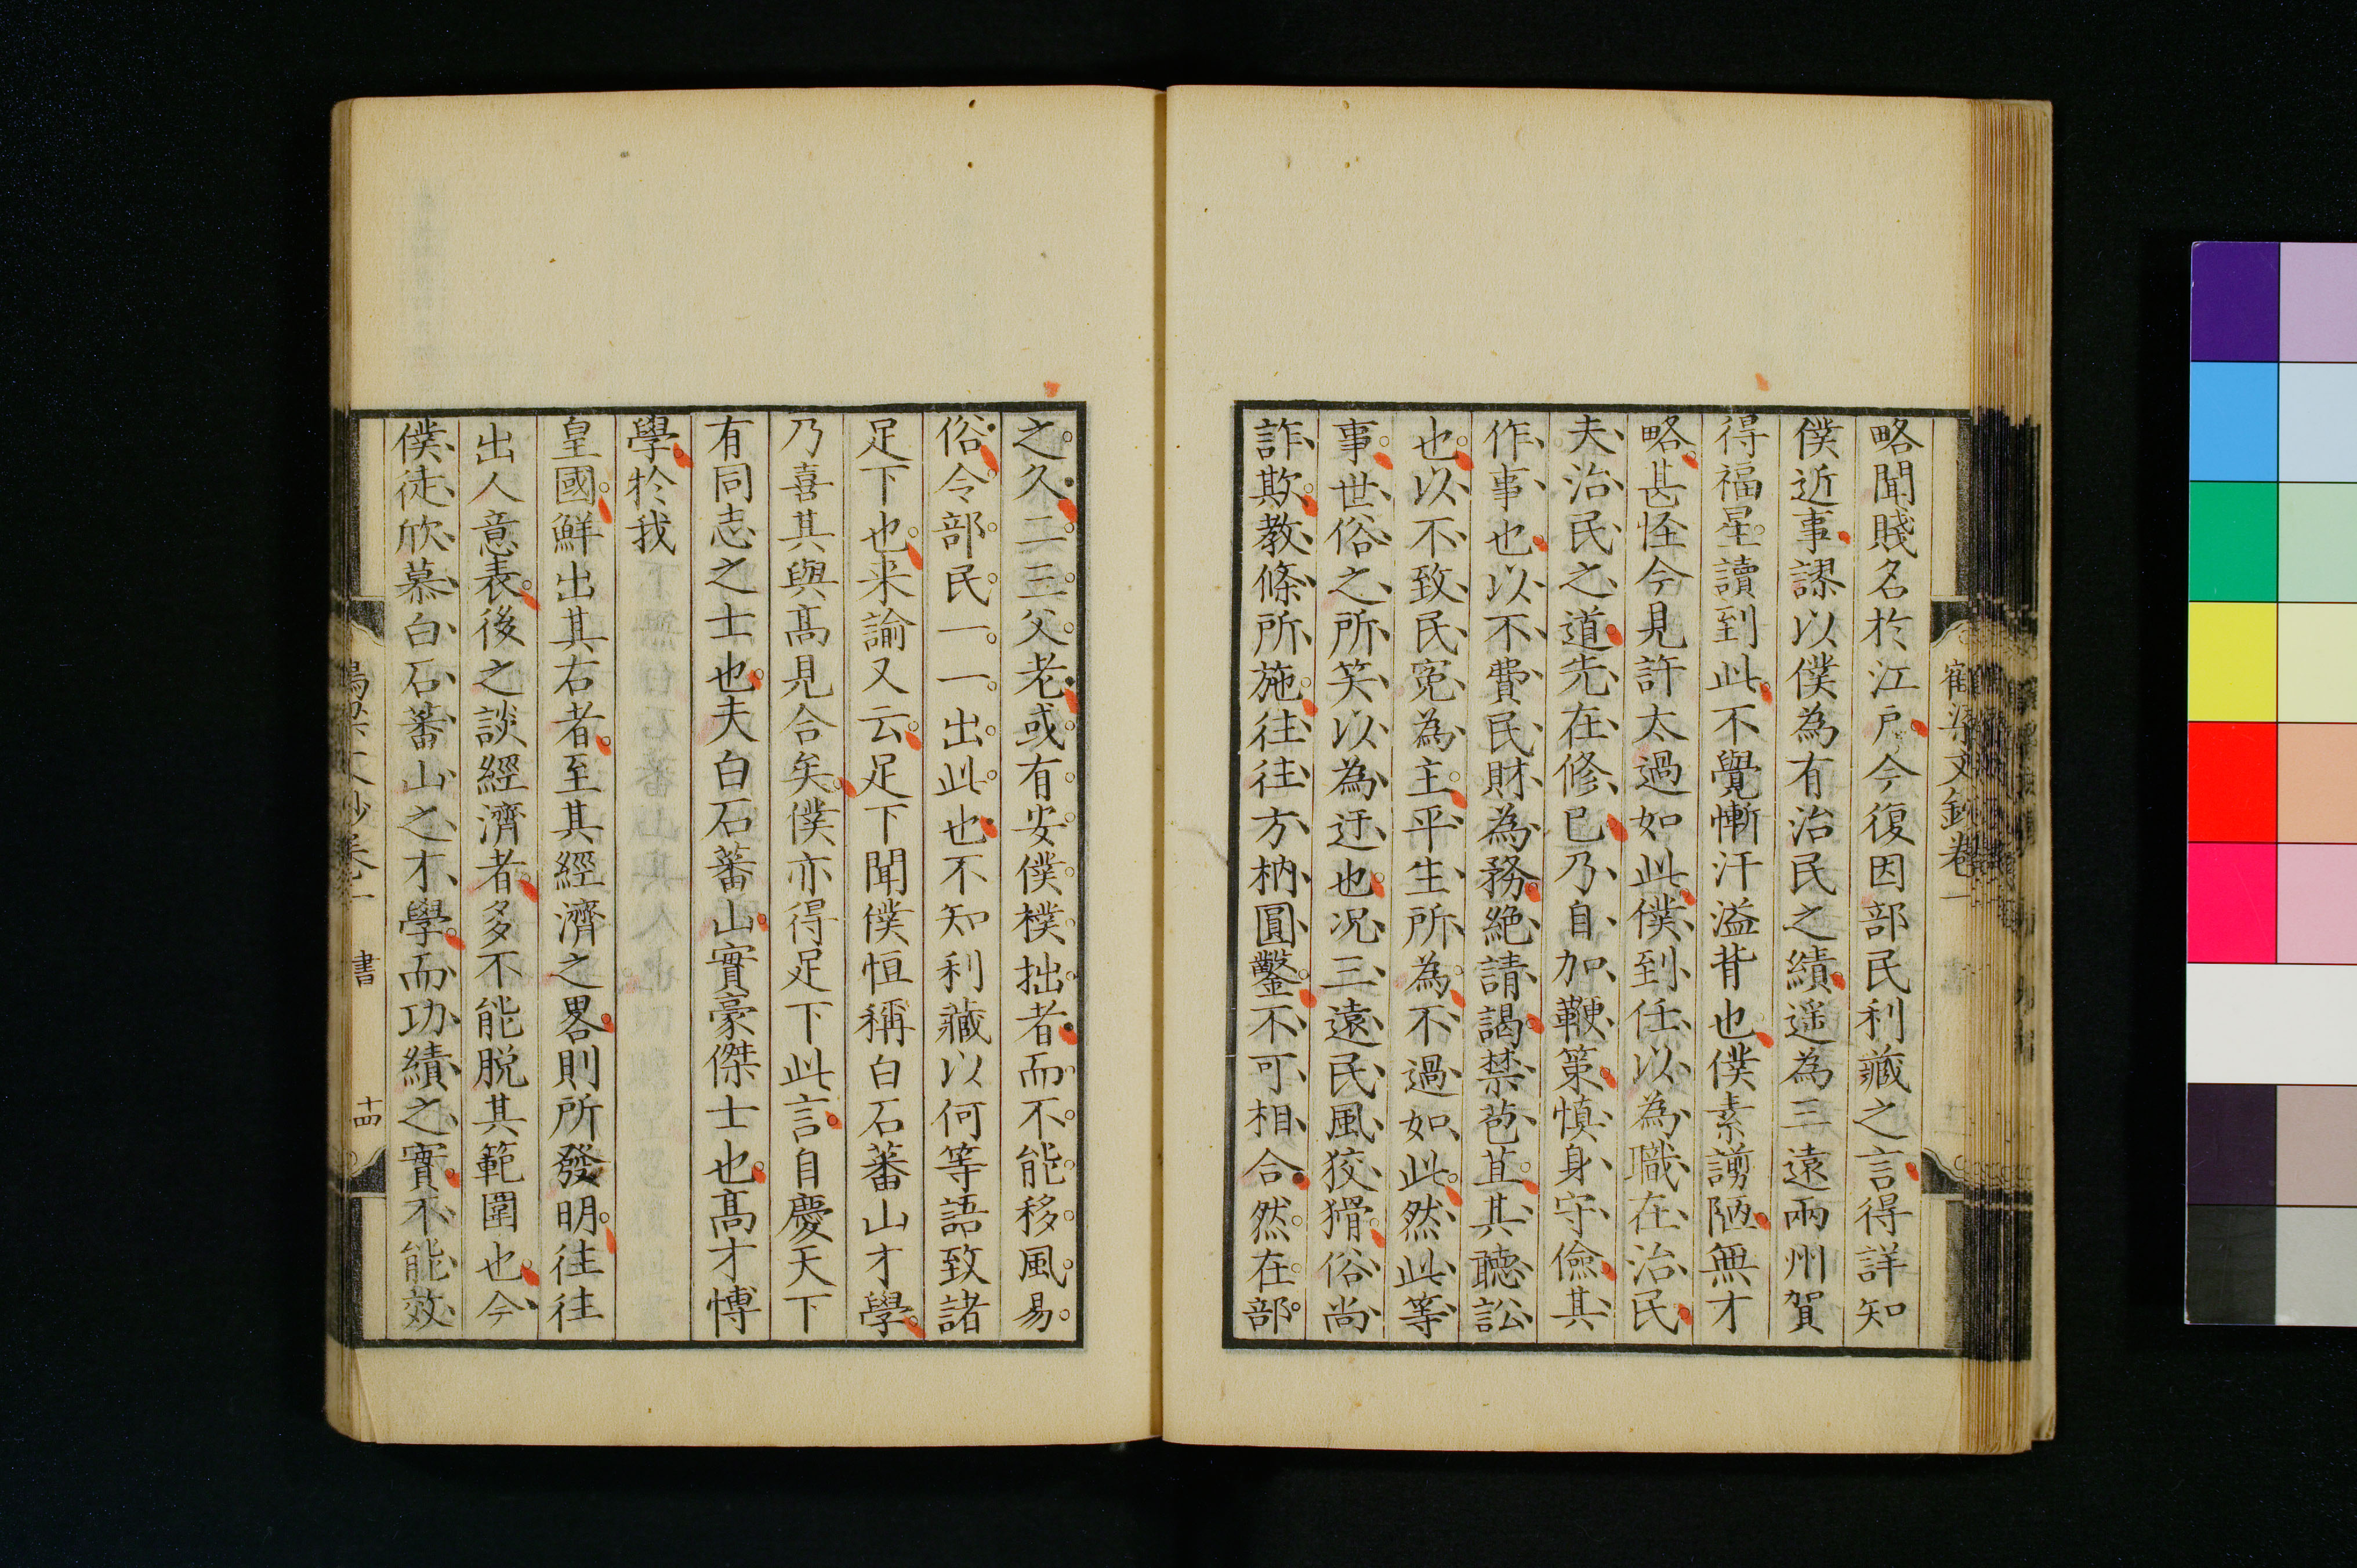 略聞賤名於江戶今復因部民利藏之言得詳知
僕近事謬以僕為有治民之績遥為三遠兩州賀
得福星讀到此不覺慚汗溢背也僕素謭陋無才
略甚怪今見許太過如此僕到任以為職在治民
夫治民之道先在修己乃自加鞭策慎身守儉其
作事也以不費民財為務絶請謁禁苞苴其聽訟
也以不致民冤為主平生所為不過如此然此等
事世俗之所笑以為迂也况三遠民風狡猾俗尚
詐欺教條所施往往方枘圓鑿不可相合然在部
之久二三父老或有安僕樸拙者而不能移風易
俗令部民一一出此也不知利藏以何等語致諸
足下也来諭又云足下聞僕恒稱白石蕃山才學
乃喜其與髙見合矣僕亦得足下此言自慶天下
有同志之士也夫白石蕃山實豪傑士也髙才博
學於我
皇國鮮出其右者至其經濟之畧則所發明往往
出人意表後之談經濟者多不能脱其範圍也今
僕徒欣慕白石蕃山之才學而功績之實不能效
文鈔卷一
書
十四